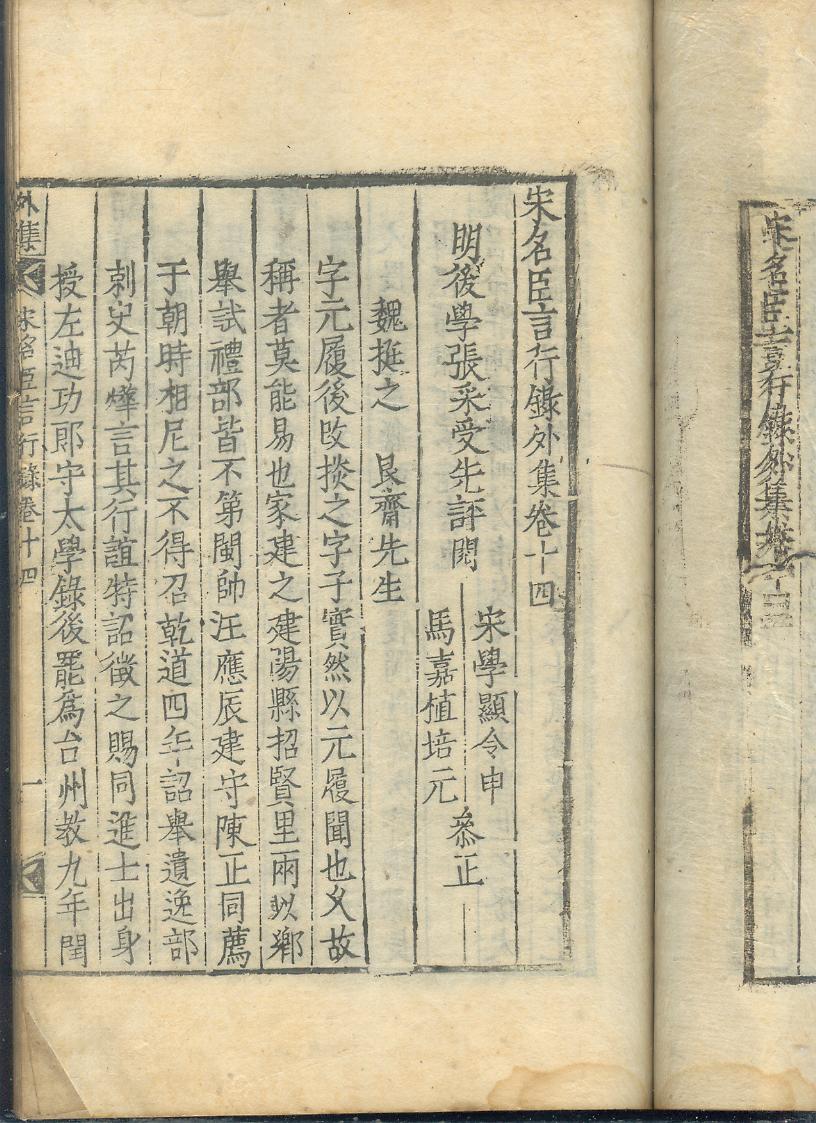 宋名臣言行錄外集卷十三
宋名臣言行錄外集卷十四
明後學張采受先評閱
宋學顯令申
馬嘉植培元
叅正
魏挺之 艮齋先生
字元履後改掞之字子實然以元履聞也乂故
稱者莫能易也家建之建陽縣招賢里兩以鄉
舉試禮部皆不第閩帥汪應辰建守陳正同薦
于朝時相尼之不得召乾道四年詔舉遺逸部
刺史芮燁言其行誼特詔徵之賜同進士出身
授左迪功郎守太學錄後罷爲台州教九年閏
外集 宋名臣言行錄卷十四 一